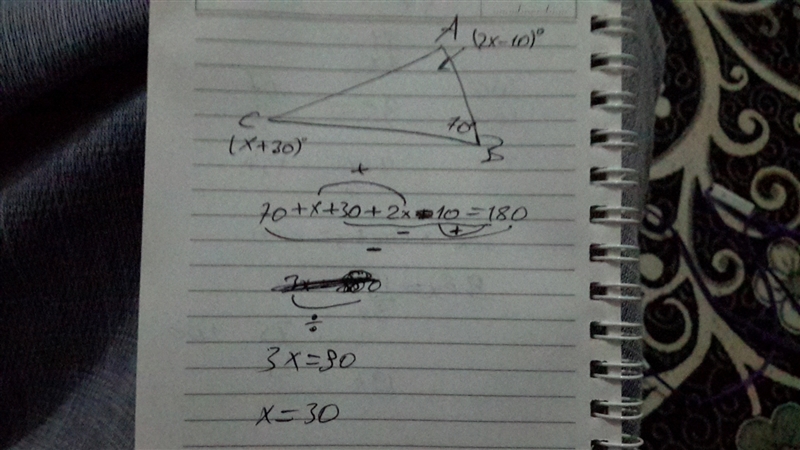 A (2x-10)°
C 70
(x+30)° B
+
70+x+30+2x-10=180
- +
-
÷
3x=90
x=30